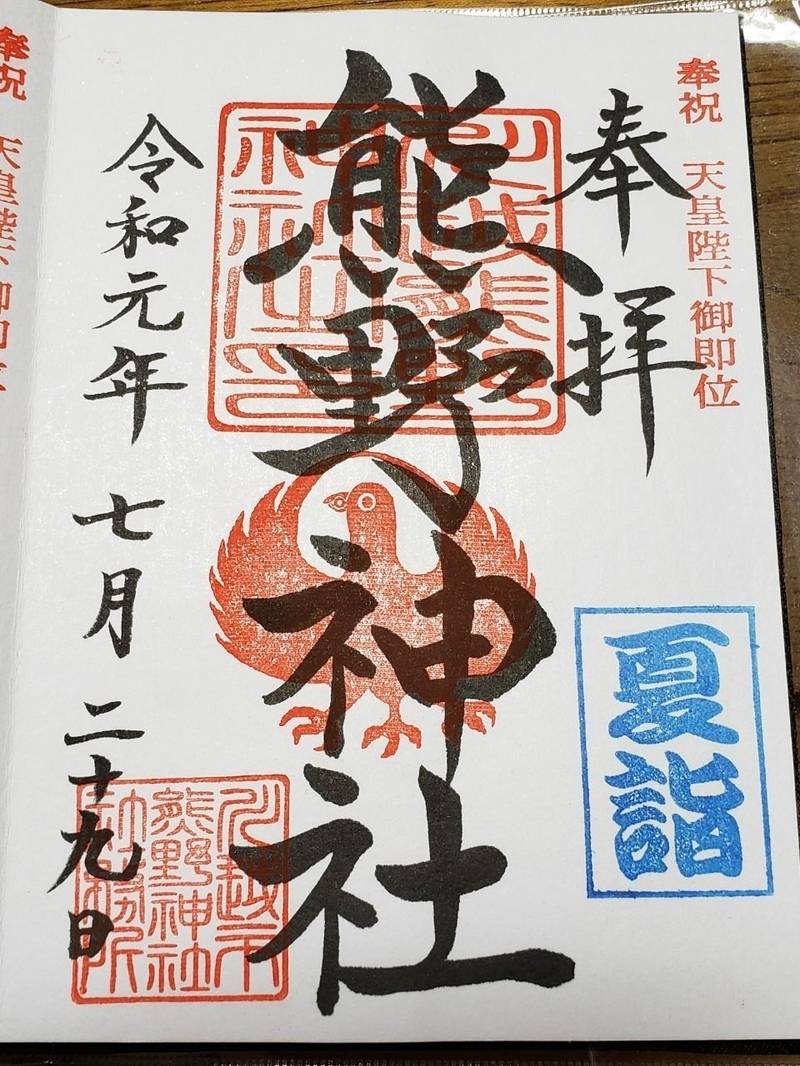 奉祝 天皇陛下御即位
奉拝
川越熊野
神社之印
熊野神社
夏詣
令和元年 七月 二十九日
川越市
熊野神社
社務所
奉祝 天皇陛下御即位